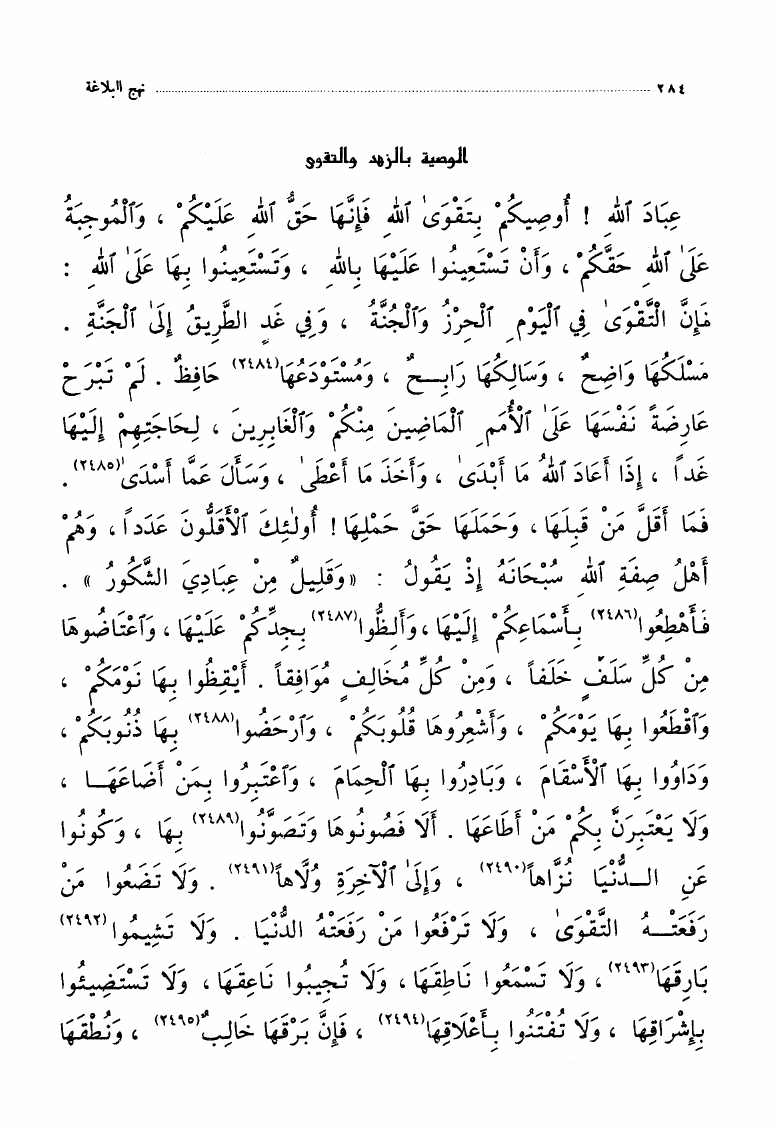 ٢٨٤ ................ نهج البلاغة
الوصية بالزهد والتقوى
عِبَادَ ٱللهِ ! أُوصِيكُمْ بِتَقْوَىٰ ٱللهِ فَإِنَّهَا حَقُّ ٱللهِ عَلَيْكُمْ ، وَٱلْمُوجِبَةُ
عَلَىٰ ٱللهِ حَقَّكُمْ ، وَأَنْ تَسْتَعِينُوا عَلَيْهَا بِاللهِ ، وَتَسْتَعِينُوا بِهَا عَلَىٰ ٱللهِ :
فَإِنَّ ٱلتَّقْوَىٰ فِي ٱلْيَوْمِ ٱلْحِرْزُ وَٱلْجُنَّةُ ، وَفِي غَدٍ الطَّرِيقُ إِلَىٰ ٱلْجَنَّةِ .
مَسْلَكُهَا وَاضِحٌ ، وَسَالِكُهَا رَابِـحٌ ، وَمُسْتَوْدَعُهَا(٢٤٨٤) حَافِظٌ . لَمْ تَبْرَحْ
عَارِضَةً نَفْسَهَا عَلَىٰ ٱلْأُمَمِ ٱلْمَاضِينَ مِنْكُمْ وَٱلْغَابِرِينَ ، لِحَاجَتِهِمْ إِلَيْهَا
غَداً ، إِذَا أَعَادَ ٱللهُ مَا أَبْدَىٰ ، وَأَخَذَ مَا أَعْطَىٰ ، وَسَأَلَ عَمَّا أَسْدَىٰ(٢٤٨٥) .
فَمَا أَقَلَّ مَنْ قَبِلَهَا ، وَحَمَلَهَا حَقَّ حَمْلِهَا ! أُولٰئِكَ ٱلْأَقَلُّونَ عَدَداً ، وَهُمْ
أَهْلُ صِفَةِ ٱللهِ سُبْحَانَهُ إِذْ يَقُولُ : «وَقَلِيلٌ مِنْ عِبَادِيَ الشَّكُورُ » .
فَأَهْطِعُوا(٢٤٨٦) بِأَسْمَاعِكُمْ إِلَيْهَا ، وَأَلِظُّوا(٢٤٨٧) بِجِدِّكُمْ عَلَيْهَا ، وَٱعْتَاضُوهَا
مِنْ كُلِّ سَلَفٍ خَلَفاً ، وَمِنْ كُلِّ مُخَالِفٍ مُوَافِقاً . أَيْقِظُوا بِهَا نَوْمَكُمْ ،
وَٱقْطَعُوا بِهَا يَوْمَكُمْ ، وَأَشْعِرُوهَا قُلُوبَكُمْ ، وَٱرْحَضُوا(٢٤٨٨) بِهَا ذُنُوبَكُمْ ،
وَدَاوُوا بِهَا ٱلْأَسْقَامَ ، وَبَادِرُوا بِهَا ٱلْحِمَامَ ، وَٱعْتَبِرُوا بِمَنْ أَضَاعَهَـا ،
وَلَا يَعْتَبِرَنَّ بِكُمْ مَنْ أَطَاعَهَا . أَلَا فَصُونُوهَا وَتَصَوَّنُوا(٢٤٨٩) بِهَا ، وَكُونُوا
عَنِ الـدُّنْيَا نُزَّاهاً(٢٤٩٠) ، وَإِلَىٰ ٱلْآخِرَةِ وُلَّاهاً(٢٤٩١) . وَلَا تَضَعُوا مَنْ
رَفَعَتْـهُ التَّقْوَىٰ ، وَلَا تَرْفَعُوا مَنْ رَفَعَتْهُ الدُّنْيَا . وَلَا تَشِيمُوا(٢٤٩٢)
بَارِقَهَا(٢٤٩٣) ، وَلَا تَسْمَعُوا نَاطِقَهَا ، وَلَا تُجِيبُوا نَاعِقَهَا ، وَلَا تَسْتَضِيئُوا
بِإِشْرَاقِهَا ، وَلَا تُفْتَنُوا بِأَعْلَاقِهَا(٢٤٩٤) ، فَإِنَّ بَرْقَهَا خَالِبٌ(٢٤٩٥) ، وَنُطْقَهَا